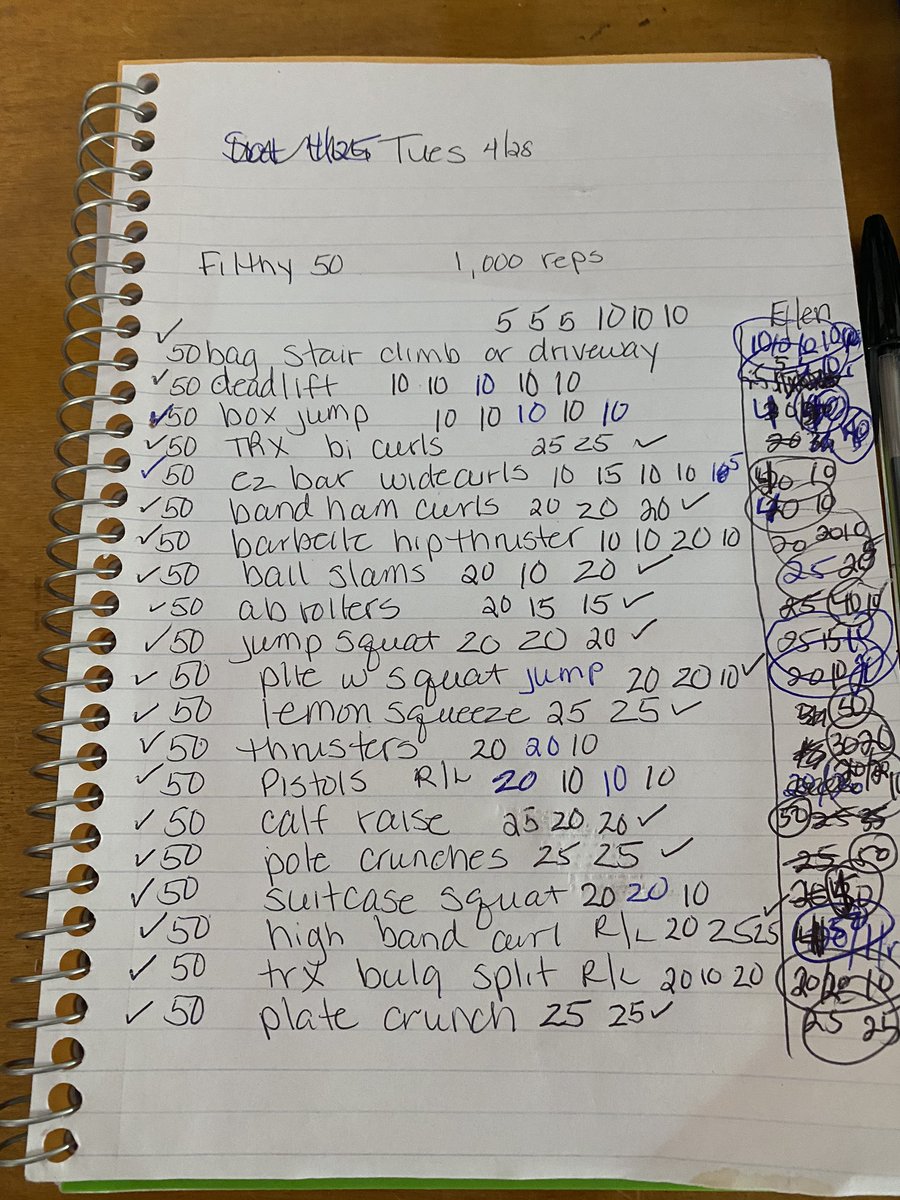 Sat 4/25 Tues 4/28
Filthy 50 1,000 reps
5 5 5 10 10 10 Ellen
✓ 50 bag stair climb or driveway 10 10 10
✓ 50 deadlift 10 10 10 10 10
✓ 50 box jump 10 10 10 10 10
✓ 50 TRX bi curls 25 25 ✓
✓ 50 ez bar widecurls 10 15 10 10 5 10
✓ 50 band ham curls 20 20 20 ✓ 10
✓ 50 barbelle hipthruster 10 10 20 10 20 20 10
✓ 50 ball slams 20 10 20 ✓ 25
✓ 50 ab rollers 20 15 15 ✓
✓ 50 jump squat 20 20 20 ✓ 25 15
✓ 50 plie w squat jump 20 20 10 ✓ 20 10
✓ 50 lemon squeeze 25 25 ✓ 50
✓ 50 thrusters 20 20 10 30 20
✓ 50 Pistols R/L 20 10 10 10
✓ 50 calf raise 25 20 20 ✓ 50 25
✓ 50 pole crunches 25 25 ✓ 25 50
✓ 50 suitcase squat 20 20 10
✓ 50 high band curl R/L 20 25 25 ✓
✓ 50 trx bulg split R/L 20 10 20 20/20 10
✓ 50 plate crunch 25 25 ✓ 25 25